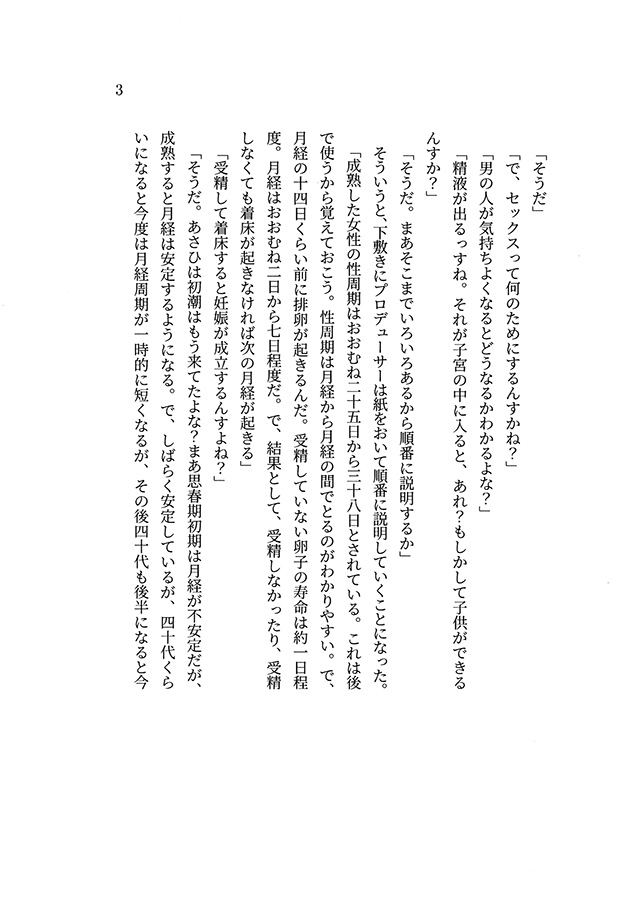 3
「そうだ」
「で、セックスって何のためにするんすかね？」
「男の人が気持ちよくなるとどうなるかわかるよな？」
「精液が出るっすね。それが子宮の中に入ると、あれ？もしかして子供ができる
んすか？」
「そうだ。まあそこまでいろいろあるから順番に説明するか」
そういうと、下敷きにプロデューサーは紙をおいて順番に説明していくことになった。
「成熟した女性の性周期はおおむね二十五日から三十八日とされている。これは後
で使うから覚えておこう。性周期は月経から月経の間でとるのがわかりやすい。で、
月経の十四日くらい前に排卵が起きるんだ。受精していない卵子の寿命は約一日程
度。月経はおおむね二日から七日程度だ。で、結果として、受精しなかったり、受精
しなくても着床が起きなければ次の月経が起きる」
「受精して着床すると妊娠が成立するんすよね？」
「そうだ。あさひは初潮はもう来てたよな？まあ思春期初期は月経が不安定だが、
成熟すると月経は安定するようになる。で、しばらく安定しているが、四十代くら
いになると今度は月経周期が一時的に短くなるが、その後四十代も後半になると今